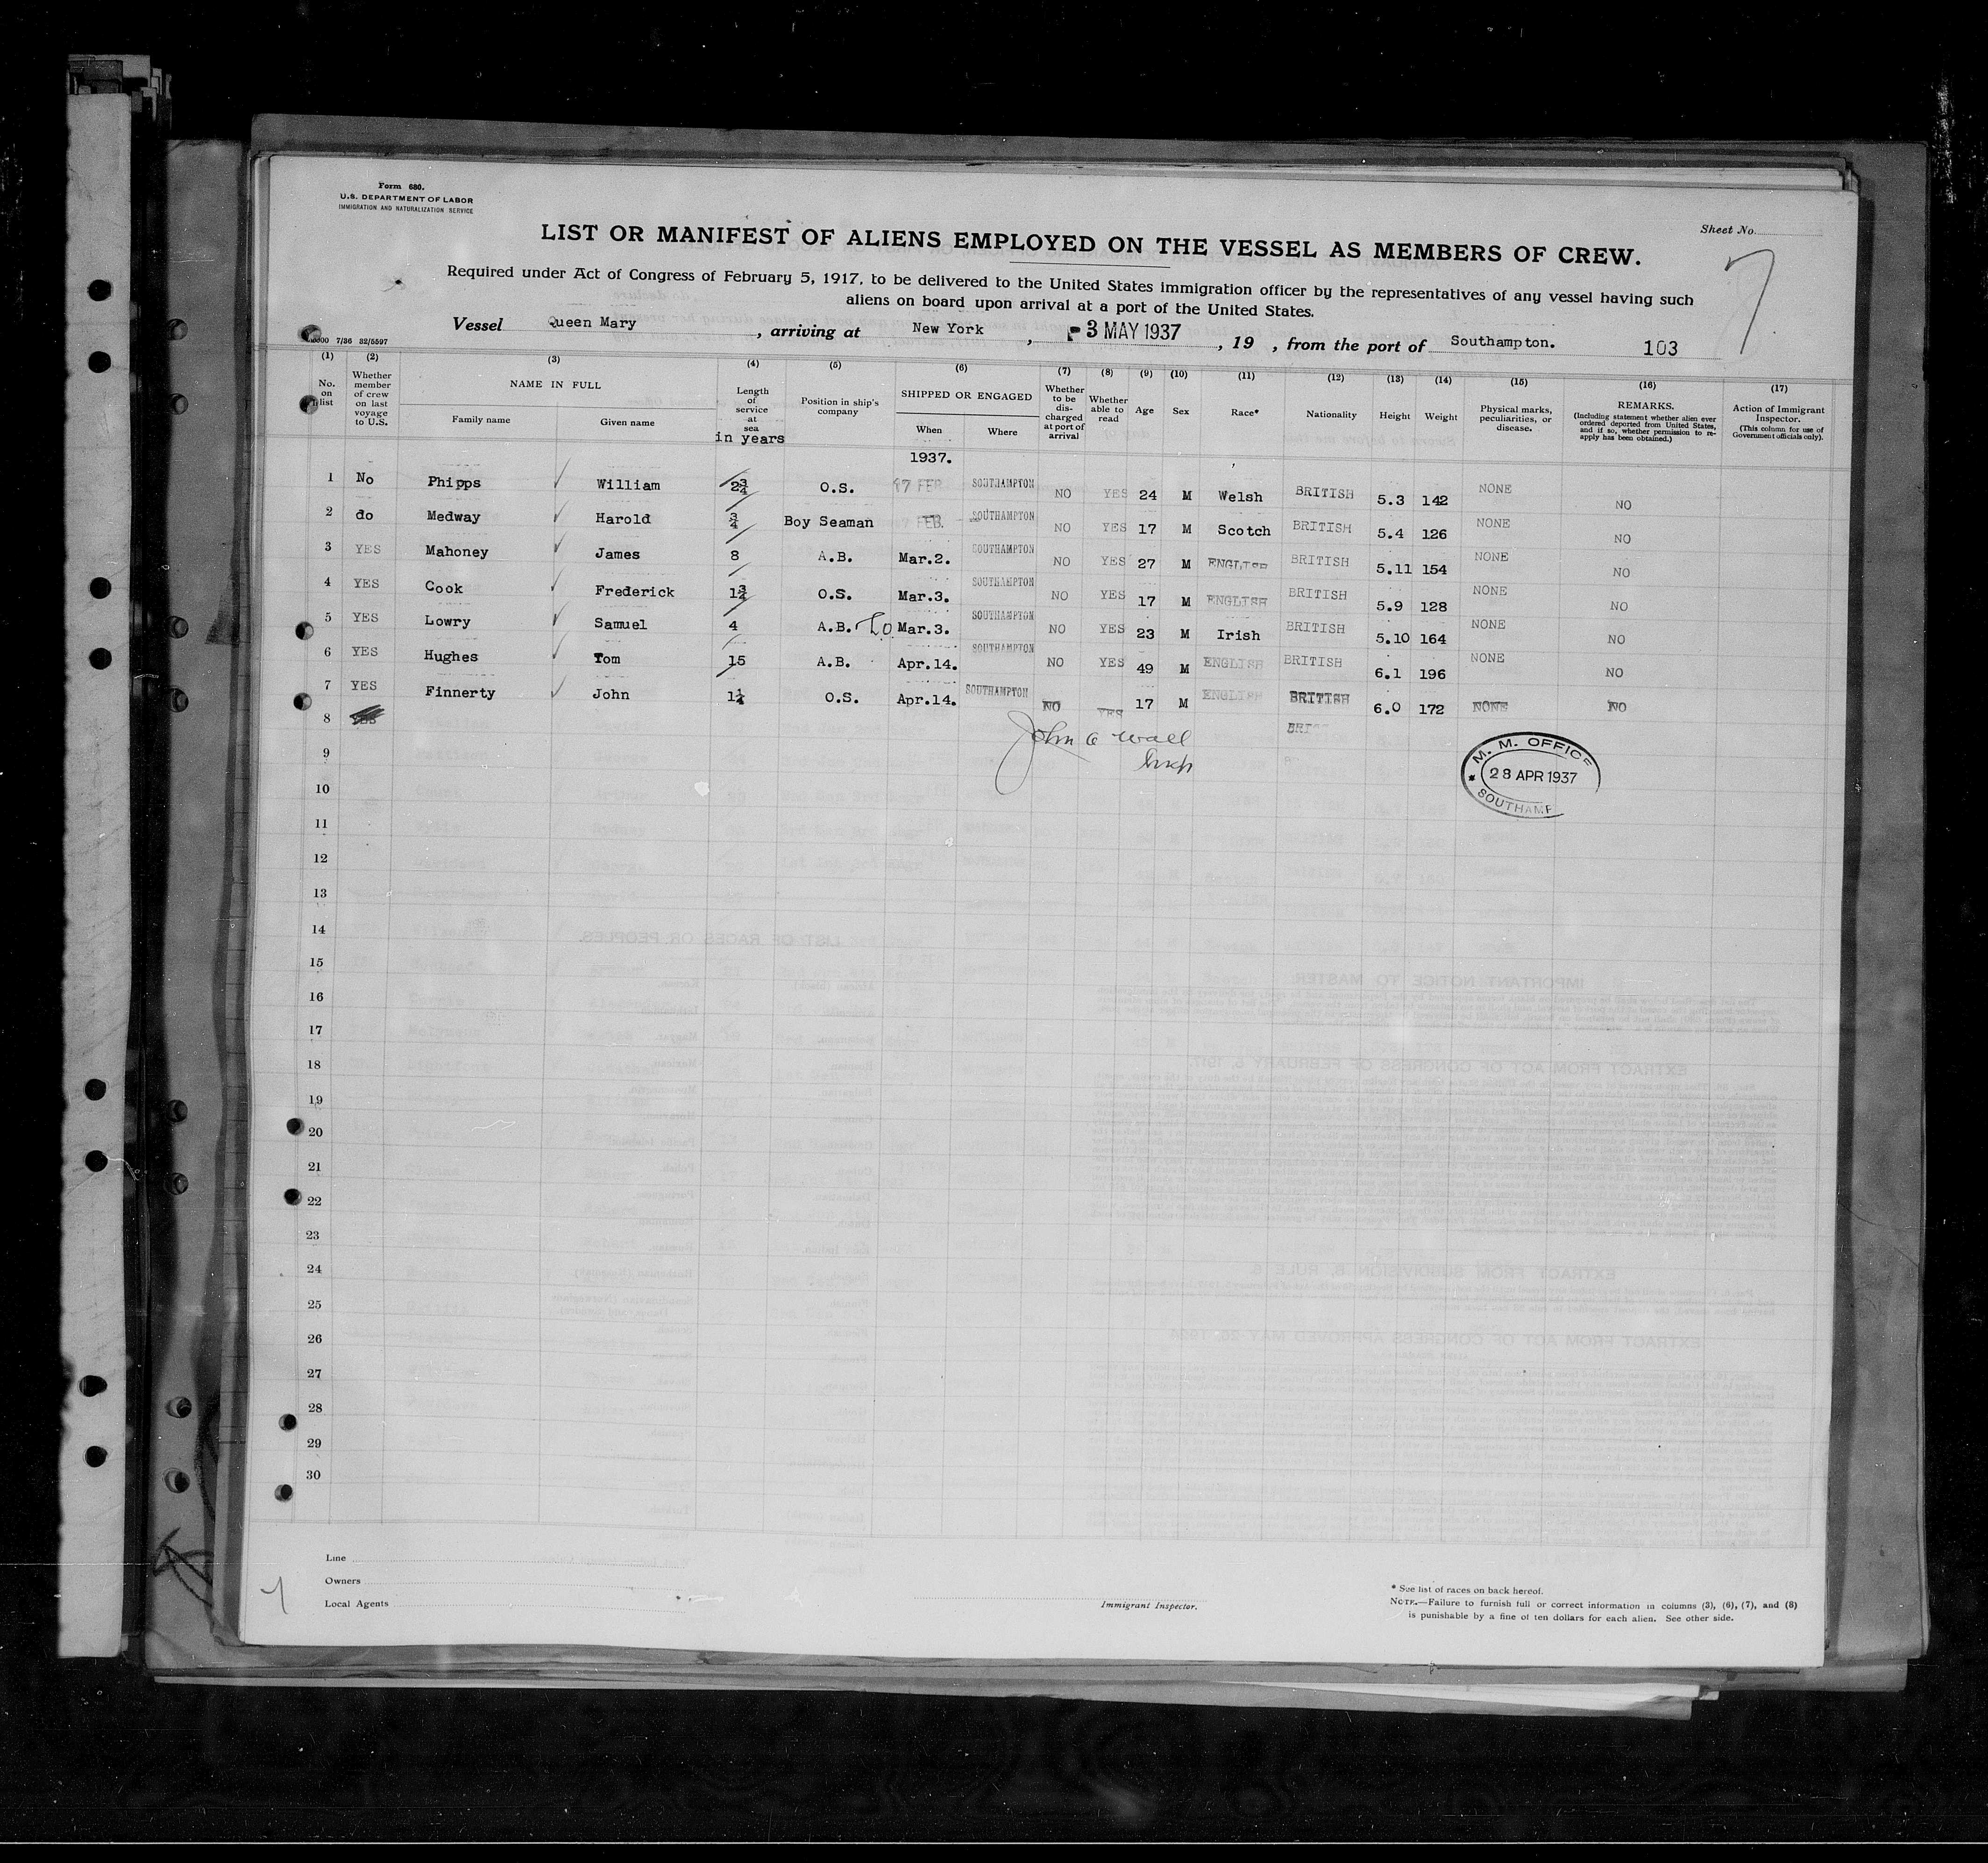 Form 680.
U.S. DEPARTMENT OF LABOR
IMMIGRATION AND NATURALIZATION SERVICE
Sheet No.
7
LIST OR MANIFEST OF ALIENS EMPLOYED ON THE VESSEL AS MEMBERS OF CREW.
Required under Act of Congress of February 5, 1917, to be delivered to the United States immigration officer by the representatives of any vessel having such
aliens on board upon arrival at a port of the United States.
Vessel Queen Mary, arriving at New York, 3 MAY 1937, 19 , from the port of Southampton. 103
7/36 32/5597
(1) (2) (3) (4) (5) (6) (7) (8) (9) (10) (11) (12) (13) (14) (15) (16) (17)
No. on list
Whether member of crew on last voyage to U.S.
NAME IN FULL
Family name
Given name
Length of service at sea
in years
Position in ship's company
SHIPPED OR ENGAGED
When
Where
Whether to be discharged at port of arrival
Whether able to read
Age
Sex
Race*
Nationality
Height
Weight
Physical marks, peculiarities, or disease.
REMARKS.
(Including statement whether alien ever ordered deported from United States, and if so, whether permission to re-apply has been obtained.)
Action of Immigrant Inspector.
(This column for use of Government officials only).
1937.
1 No Phipps William 2¾ O.S. 17 FEB SOUTHAMPTON NO YES 24 M Welsh BRITISH 5.3 142 NONE NO
2 do Medway Harold ¾ Boy Seaman FEB. SOUTHAMPTON NO YES 17 M Scotch BRITISH 5.4 126 NONE NO
3 YES Mahoney James 8 A.B. Mar.2. SOUTHAMPTON NO YES 27 M ENGLISH BRITISH 5.11 154 NONE NO
4 YES Cook Frederick 1¾ O.S. Mar.3. SOUTHAMPTON NO YES 17 M ENGLISH BRITISH 5.9 128 NONE NO
5 YES Lowry Samuel 4 A.B. Mar.3. SOUTHAMPTON NO YES 23 M Irish BRITISH 5.10 164 NONE NO
6 YES Hughes Tom 15 A.B. Apr.14. SOUTHAMPTON NO YES 49 M ENGLISH BRITISH 6.1 196 NONE NO
7 YES Finnerty John 1¼ O.S. Apr.14. SOUTHAMPTON NO YES 17 M ENGLISH BRITISH 6.0 172 NONE NO
8
John G Wall
Insp
M. M. OFFICE
28 APR 1937
SOUTHAMP
9
10
11
12
13
14
15
16
17
18
19
20
21
22
23
24
25
26
27
28
29
30
Line
Owners
Local Agents
Immigrant Inspector.
* See list of races on back hereof.
NOTE.—Failure to furnish full or correct information in columns (3), (6), (7), and (8)
is punishable by a fine of ten dollars for each alien. See other side.